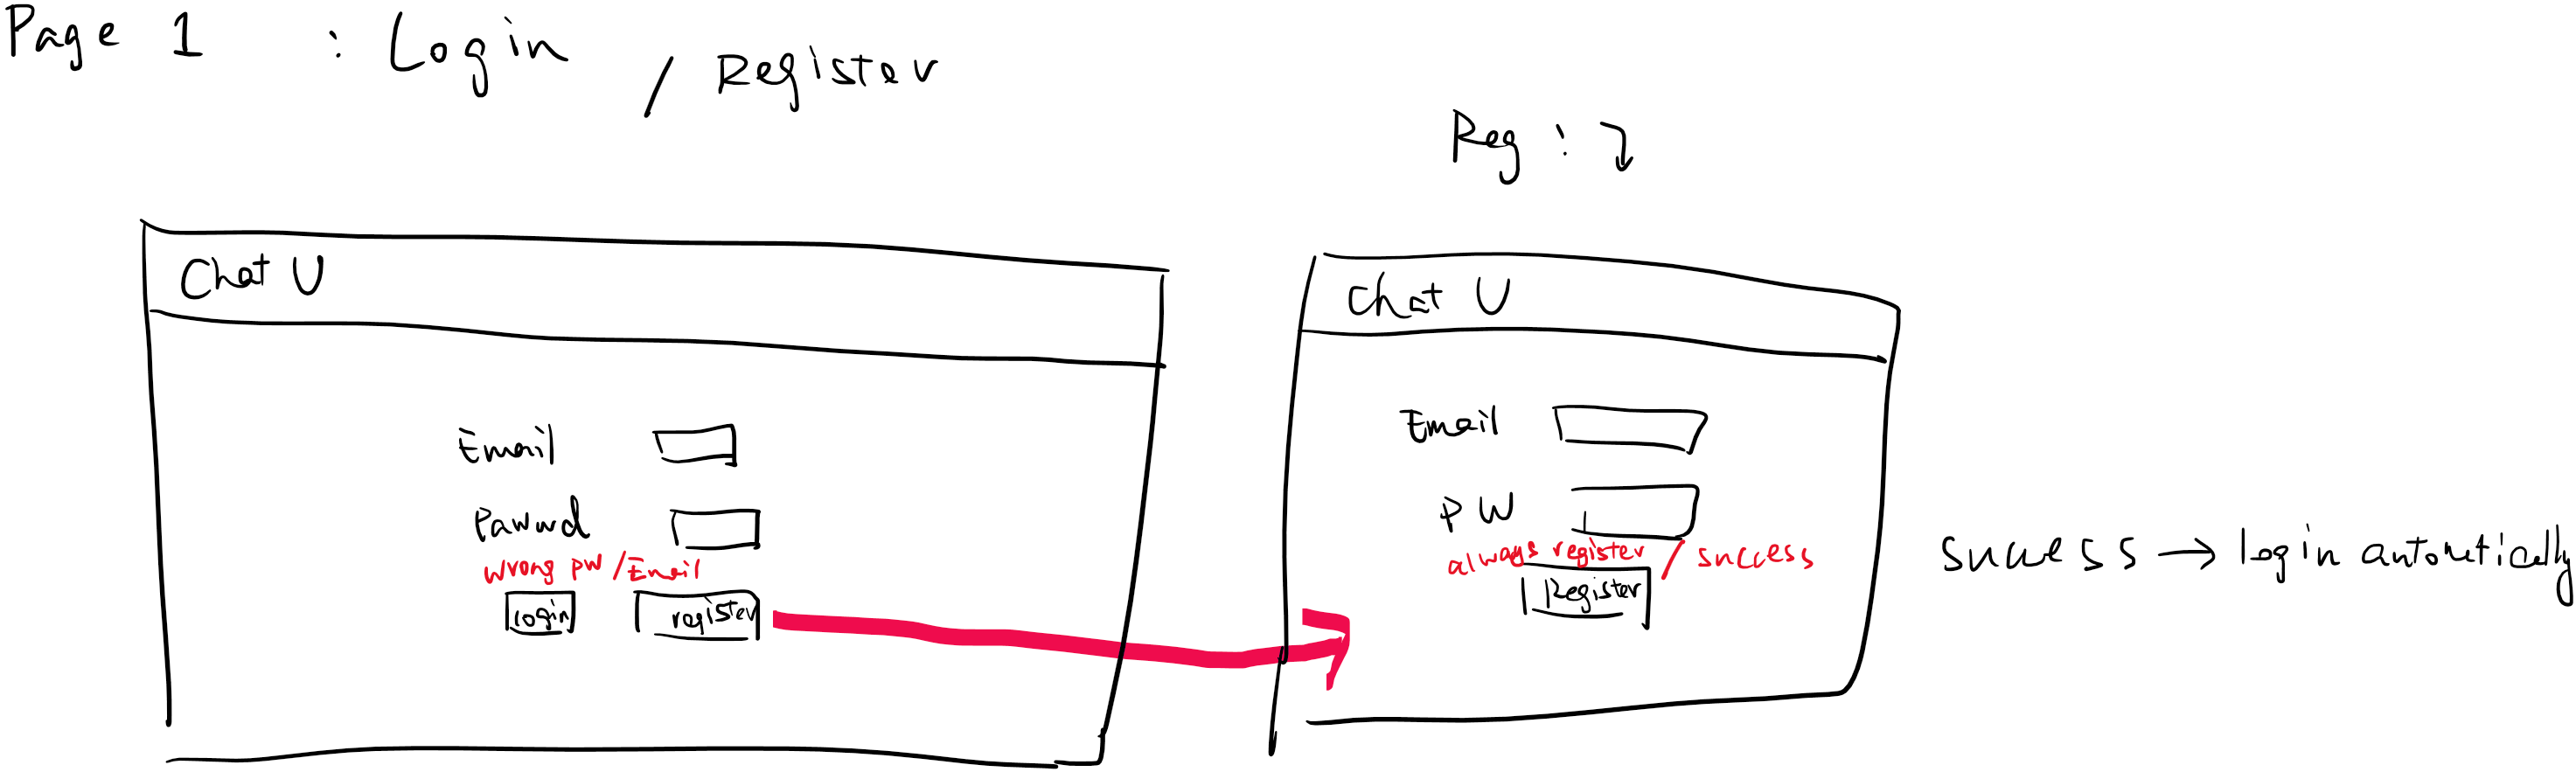 Page 1 : Login / Register
Reg :
Chat U
Email
Pawwd
wrong pw / Email
login
register
Chat U
Email
PW
always register / success
Register
success → login automatically